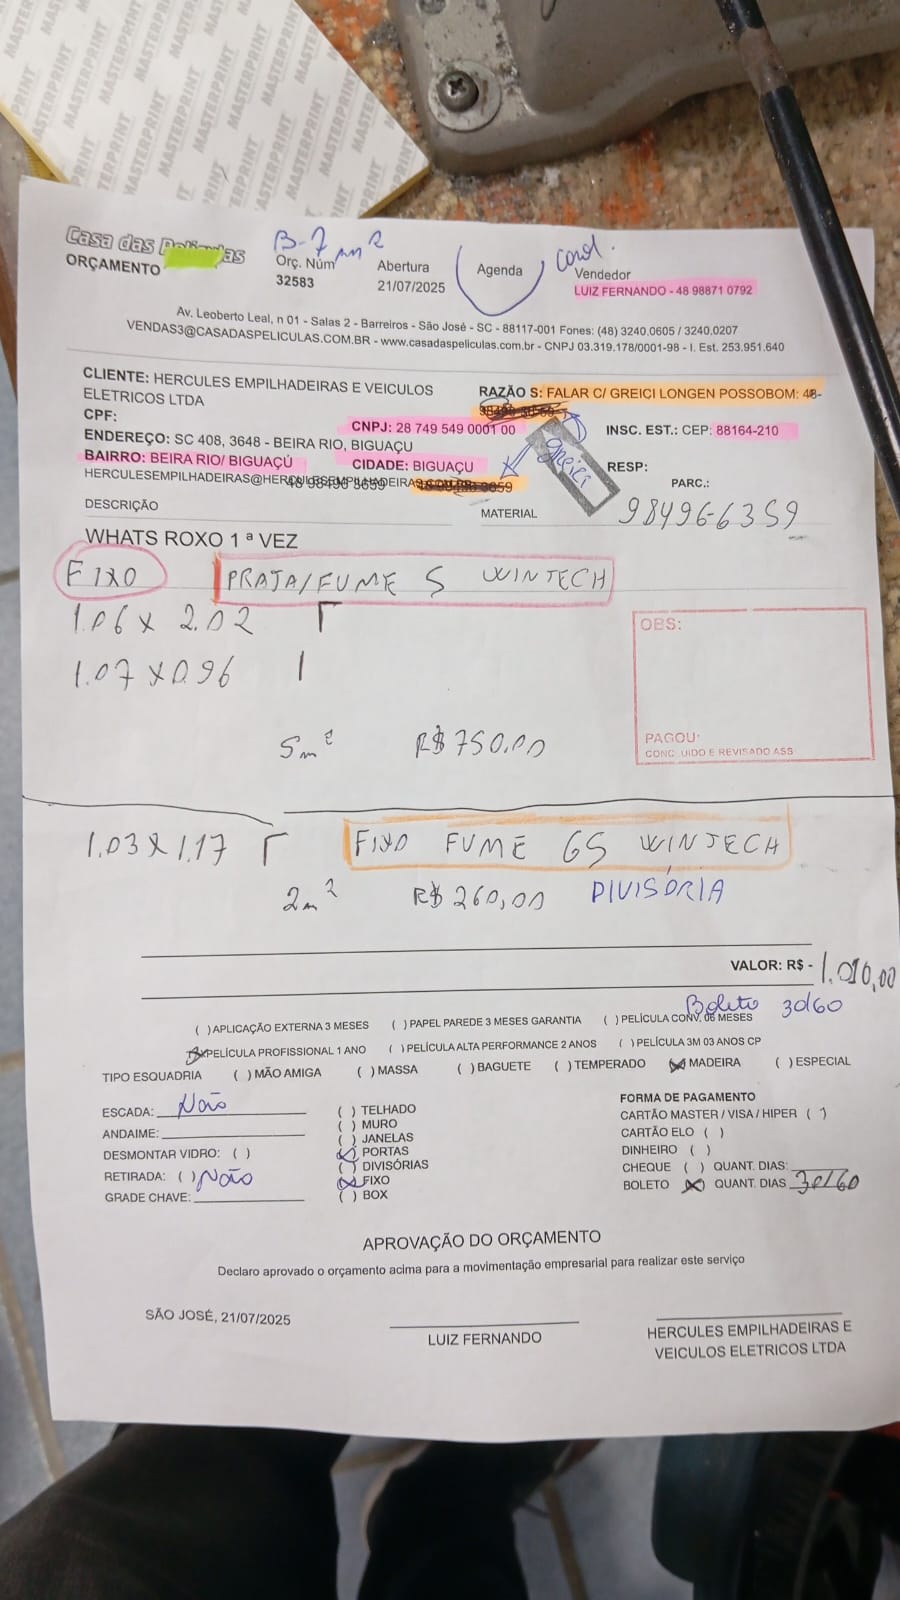 MASTERPRINT
Casa das Películas
ORÇAMENTO
B-7 m2
Orç. Núm
32583
Abertura
21/07/2025
Agenda
Cond.
Vendedor
LUIZ FERNANDO - 48 98871 0792
Av. Leoberto Leal, n 01 - Salas 2 - Barreiros - São José - SC - 88117-001 Fones: (48) 3240.0605 / 3240.0207
VENDAS3@CASADASPELICULAS.COM.BR - www.casadaspeliculas.com.br - CNPJ 03.319.178/0001-98 - I. Est. 253.951.640
CLIENTE: HERCULES EMPILHADEIRAS E VEICULOS
ELETRICOS LTDA
RAZÃO S: FALAR C/ GREICI LONGEN POSSOBOM: 48-
CPF:
CNPJ: 28 749 549 0001 00
INSC. EST.: CEP: 88164-210
ENDEREÇO: SC 408, 3648 - BEIRA RIO, BIGUAÇU
Greici
BAIRRO: BEIRA RIO/ BIGUAÇÚ
CIDADE: BIGUAÇU
RESP:
HERCULESEMPILHADEIRAS@HERCULESEMPILHADEIRAS.COM.BR
PARC.:
DESCRIÇÃO
MATERIAL
98496-6359
WHATS ROXO 1 ª VEZ
FIXO PRATA/FUME S WINTECH
1.06 x 2.02 Γ
OBS:
1.07 x 0.96 I
5m² R$ 750.00
PAGOU:
CONCLUIDO E REVISADO ASS
1.03 x 1.17 Γ FIXO FUME GS WINTECH
2m² R$ 260,00 DIVISÓRIA
VALOR: R$ - 1.010,00
Boleto 30/60
( )APLICAÇÃO EXTERNA 3 MESES ( ) PAPEL PAREDE 3 MESES GARANTIA ( ) PELÍCULA CONV. 06 MESES
(X)PELÍCULA PROFISSIONAL 1 ANO ( ) PELÍCULA ALTA PERFORMANCE 2 ANOS ( ) PELÍCULA 3M 03 ANOS CP
TIPO ESQUADRIA ( ) MÃO AMIGA ( ) MASSA ( ) BAGUETE ( ) TEMPERADO (X) MADEIRA ( ) ESPECIAL
ESCADA: Não
( ) TELHADO
FORMA DE PAGAMENTO
( ) MURO
CARTÃO MASTER / VISA / HIPER ( )
ANDAIME:
( ) JANELAS
CARTÃO ELO ( )
DESMONTAR VIDRO: ( )
(X) PORTAS
DINHEIRO ( )
( ) DIVISÓRIAS
CHEQUE ( ) QUANT. DIAS:
RETIRADA: ( ) Não
(X) FIXO
BOLETO (X) QUANT. DIAS 30/60
GRADE CHAVE:
( ) BOX
APROVAÇÃO DO ORÇAMENTO
Declaro aprovado o orçamento acima para a movimentação empresarial para realizar este serviço
SÃO JOSÉ, 21/07/2025
LUIZ FERNANDO
HERCULES EMPILHADEIRAS E
VEICULOS ELETRICOS LTDA